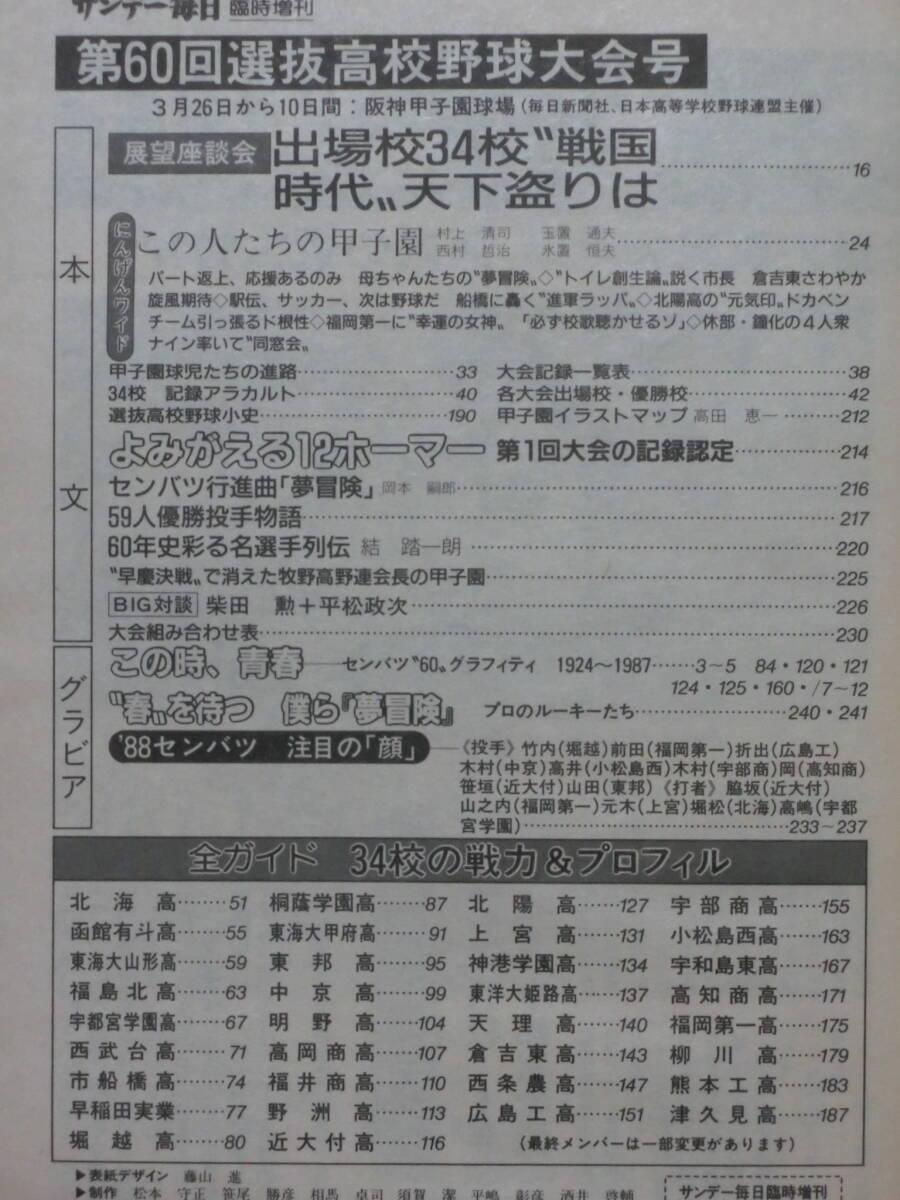 サンデー毎日 臨時増刊
第60回選抜高校野球大会号
3月26日から10日間：阪神甲子園球場（毎日新聞社、日本高等学校野球連盟主催）
本文
展望座談会 出場校34校〝戦国
時代〟天下盗りは……16
にんげんワイド
この人たちの甲子園 村上 清司 玉置 通夫
西村 哲治 氷置 恒夫……24
パート返上、応援あるのみ 母ちゃんたちの〝夢冒険〟◇〝トイレ創生論〟説く市長 倉吉東さわやか
旋風期待◇駅伝、サッカー、次は野球だ 船橋に轟く〝進軍ラッパ〟◇北陽高の〝元気印〟ドカベン
チーム引っ張るド根性◇福岡第一に〝幸運の女神〟「必ず校歌聴かせるゾ」◇休部・鐘化の4人衆
ナイン率いて〝同窓会〟
甲子園球児たちの進路……33 大会記録一覧表……38
34校 記録アラカルト……40 各大会出場校・優勝校……42
選抜高校野球小史……190 甲子園イラストマップ 高田 恵一……212
よみがえる12ホーマー 第1回大会の記録認定……214
センバツ行進曲「夢冒険」 岡本 嗣郎……216
59人優勝投手物語……217
60年史彩る名選手列伝 結 踏一朗……220
〝早慶決戦〟で消えた牧野高野連会長の甲子園……225
BIG対談 柴田 勲＋平松政次……226
大会組み合わせ表……230
グラビア
この時、青春──センバツ〝60〟グラフィティ 1924〜1987……3〜5 84・120・121
124・125・160・/7〜12
〝春〟を待つ 僕ら『夢冒険』 プロのルーキーたち……240・241
'88センバツ 注目の「顔」──《投手》竹内(堀越)前田(福岡第一)折出(広島工)
木村(中京)高井(小松島西)木村(宇部商)岡(高知商)
笹垣(近大付)山田(東邦)《打者》脇坂(近大付)
山之内(福岡第一)元木(上宮)堀松(北海)高嶋(宇都
宮学園)……233〜237
全ガイド 34校の戦力&プロフィル
北海高……51 桐蔭学園高……87 北陽高……127 宇部商高……155
函館有斗高……55 東海大甲府高……91 上宮高……131 小松島西高……163
東海大山形高……59 東邦高……95 神港学園高……134 宇和島東高……167
福島北高……63 中京高……99 東洋大姫路高……137 高知商高……171
宇都宮学園高……67 明野高……104 天理高……140 福岡第一高……175
西武台高……71 高岡商高……107 倉吉東高……143 柳川高……179
市船橋高……74 福井商高……110 西条農高……147 熊本工高……183
早稲田実業……77 野洲高……113 広島工高……151 津久見高……187
堀越高……80 近大付高……116 （最終メンバーは一部変更があります）
▶表紙デザイン 藤山 進
▶制作 松本 守正 笹尾 勝彦 相馬 卓司 須賀 潔 平嶋 彰彦 酒井 啓輔
サンデー毎日臨時増刊